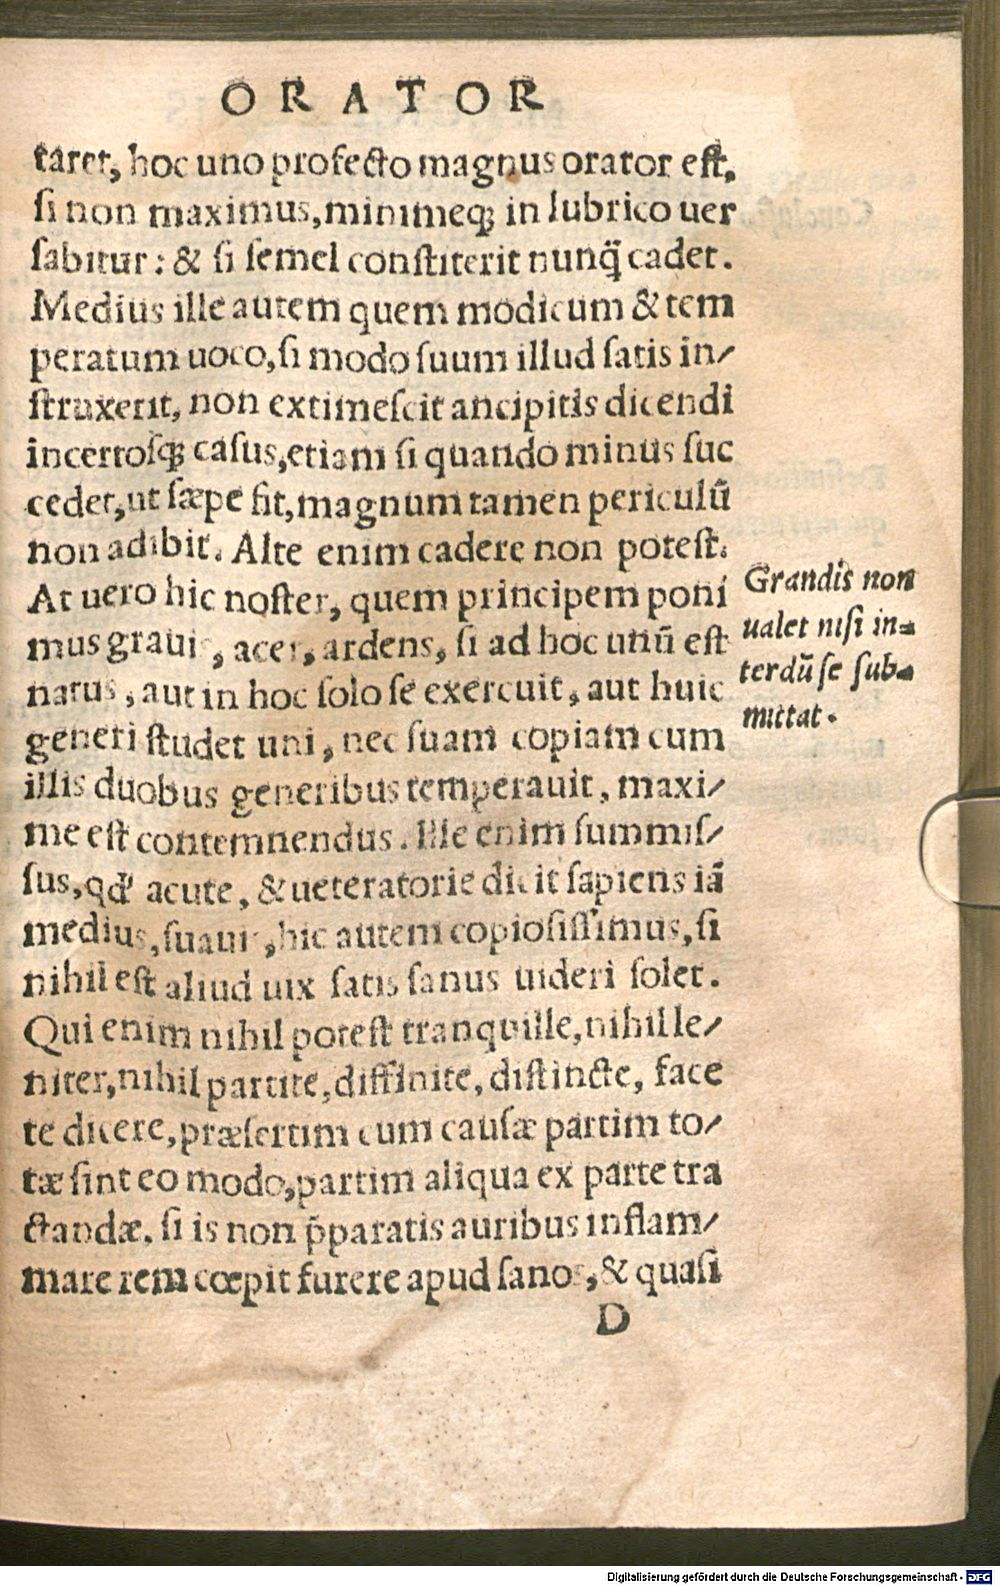 ORATOR
taret, hoc uno profecto magnus orator est,
si non maximus, minimeq́ꝫ in lubrico uer
sabitur: & si semel constiterit nunq̃ cadet.
Medius ille autem quem modicum & tem
peratum uoco, si modo suum illud satis in/
struxerit, non extimescit ancipitis dicendi
incertosq́ꝫ casus, etiam si quando minus suc
cedet, ut sæpe fit, magnum tamen periculũ
non adibit. Alte enim cadere non potest.
At uero hic noster, quem principem poni
mus grauis, acer, ardens, si ad hoc unũ est
natus, aut in hoc solo se exercuit, aut huic
generi studet uni, nec suam copiam cum
illis duobus generibus temperauit, maxi/
me est contemnendus. Ille enim summis/
sus, qđ acute, & ueteratorie dicit sapiens iã
medius, suauis, hic autem copiosissimus, si
nihil est aliud uix satis sanus uideri solet.
Qui enim nihil potest tranquille, nihil le/
niter, nihil partite, diffinite, distincte, face
te dicere, præsertim cum causæ partim to/
tæ sint eo modo, partim aliqua ex parte tra
ctandæ. si is non p̃paratis auribus inflam/
mare rem cœpit furere apud sanos, & quasi
D
Grandis non
ualet nisi in-
terdũ se sub-
mittat.
Digitalisierung gefördert durch die Deutsche Forschungsgemeinschaft - DFG